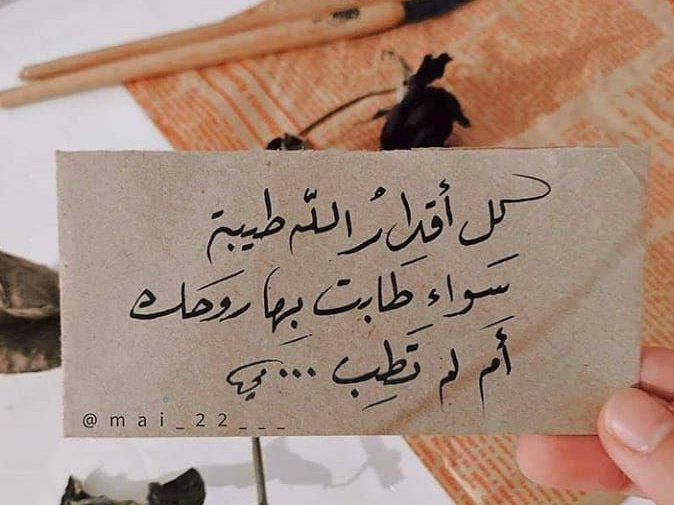 كل أقدارُ اللّه طيبة
سَواء طابت بِها روَحك
أَم لم تَطِب ... مي
@mai_22___